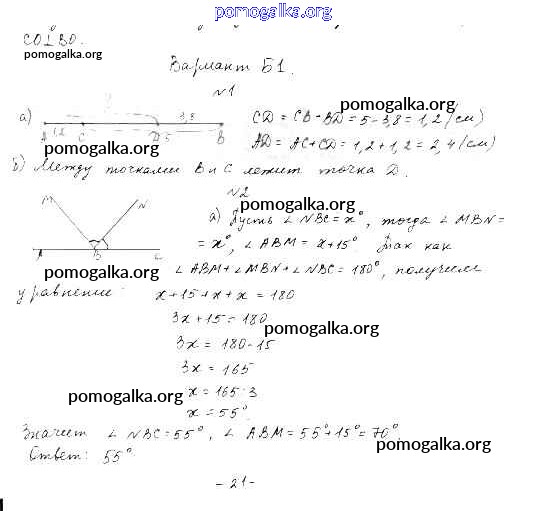 pomogalka.org
CO⊥BO.
pomogalka.org
Вариант Б1.
№1
а) A 1,2 C D 5 3,8 B
CD = CB - BD = 5 - 3,8 = 1,2 (см)
pomogalka.org
AD = AC + CD = 1,2 + 1,2 = 2,4 (см)
pomogalka.org
б) Между точками B и C лежит точка D.
№2
M N A B C
pomogalka.org
а) Пусть ∠NBC = x°, тогда ∠MBN =
= x°, ∠ABM = x + 15° Так как
pomogalka.org
∠ABM + ∠MBN + ∠NBC = 180°, получаем
уравнение:
x + 15 + x + x = 180
3x + 15 = 180
pomogalka.org
3x = 180 - 15
3x = 165
x = 165 : 3
pomogalka.org
x = 55°.
Значит ∠NBC = 55°, ∠ABM = 55° + 15° = 70°
pomogalka.org
Ответ: 55°
- 21 -